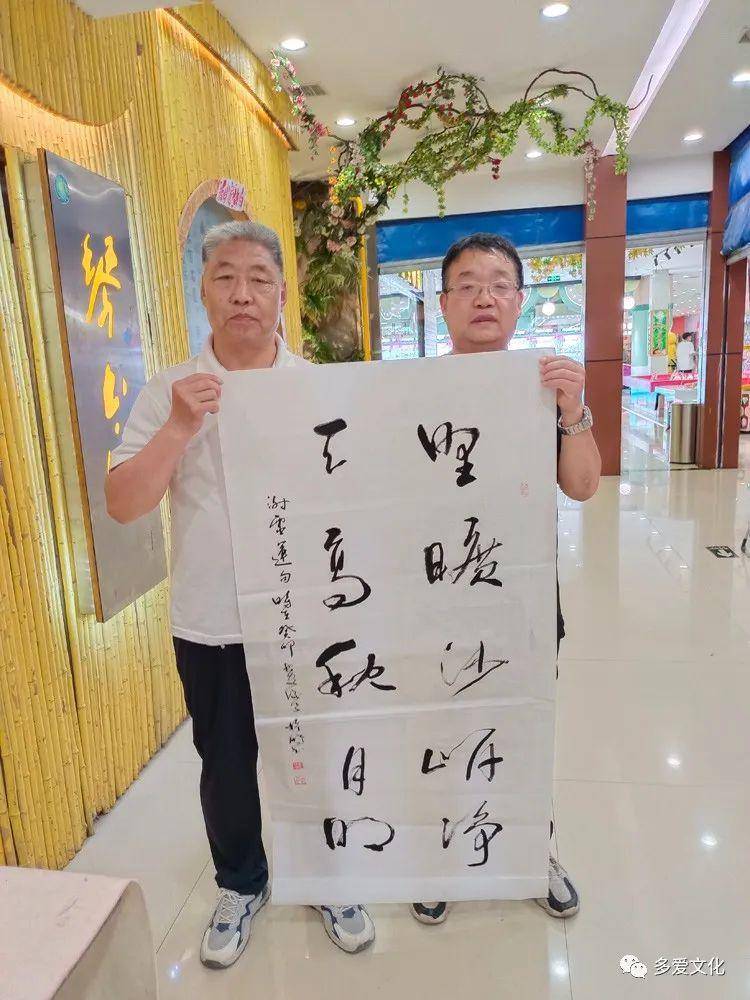 野曠沙岍净
天高秋月明
謝靈運句 時在癸卯
多爱文化